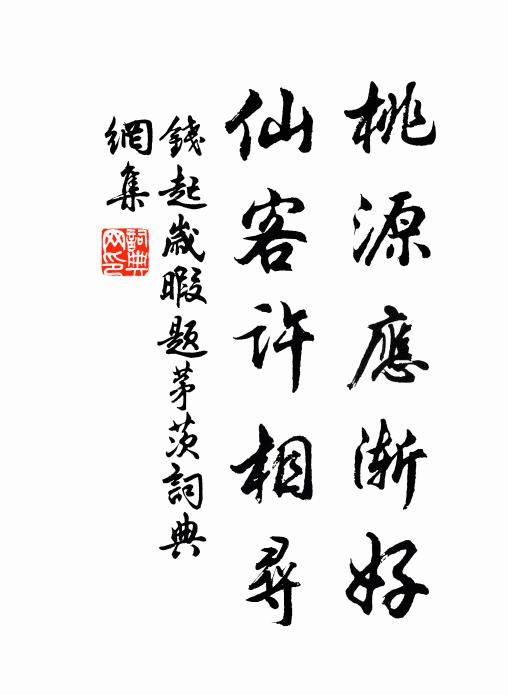 桃源應漸好
仙客許相尋
錢起歲暇題茅茨詞典
網集
詞典
网印